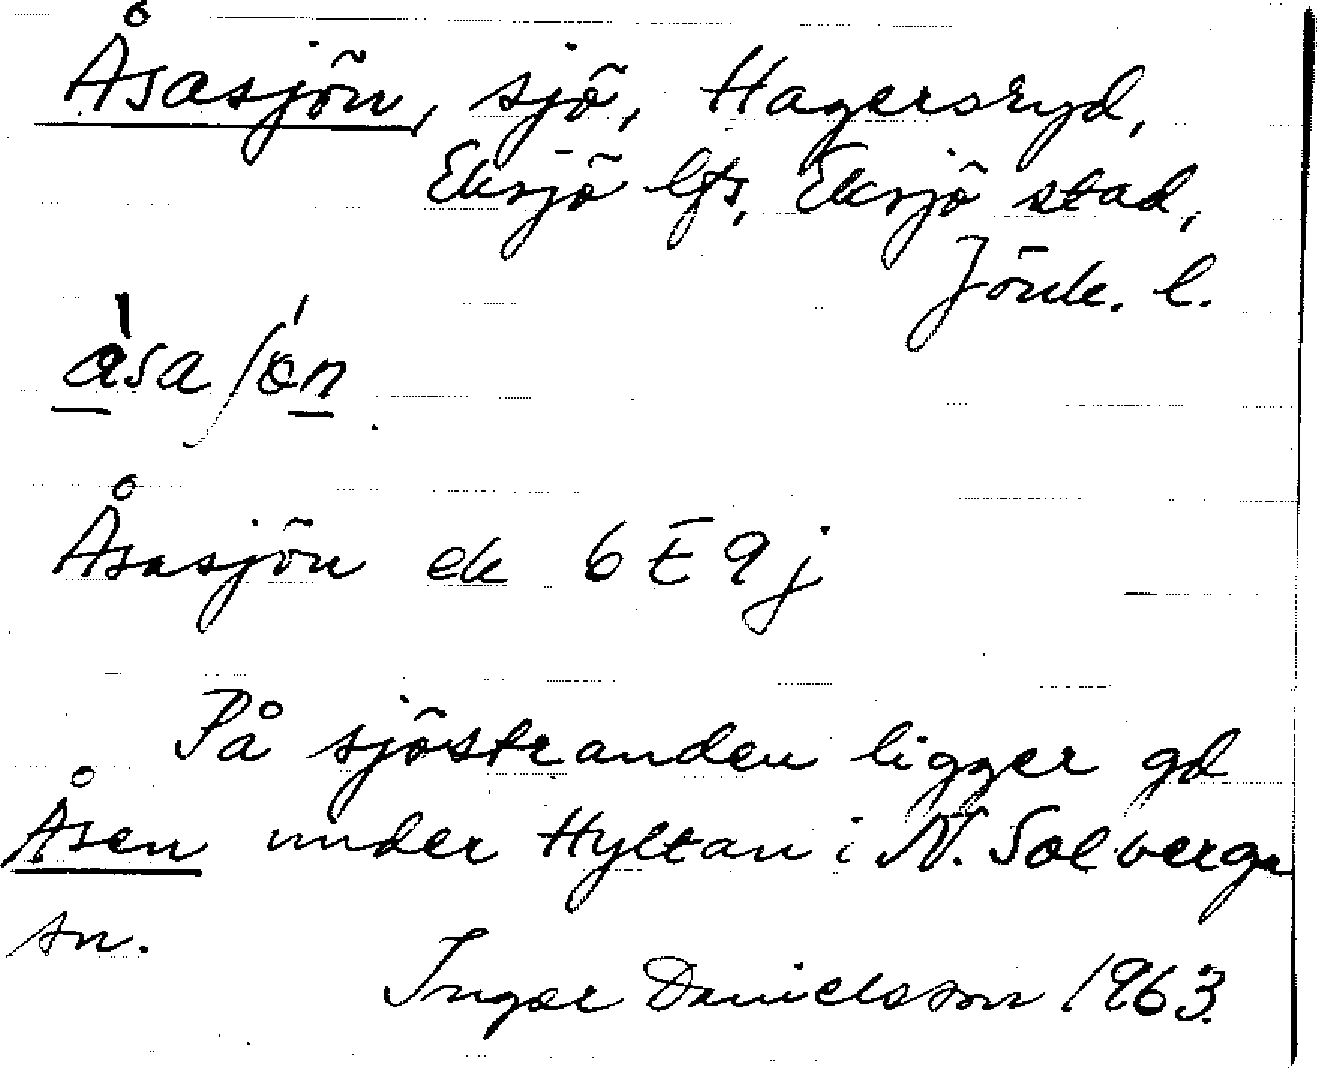 Åsasjön, sjö, Hagersryd,
Eksjö lfs, Eksjö stad,
Jönk. l.
Åsasjön ek 6 E 9 j
På sjöstranden ligger gd
Åsen under Hyltan i N. Solberga
sn.
Ingar Danielsson 1963.